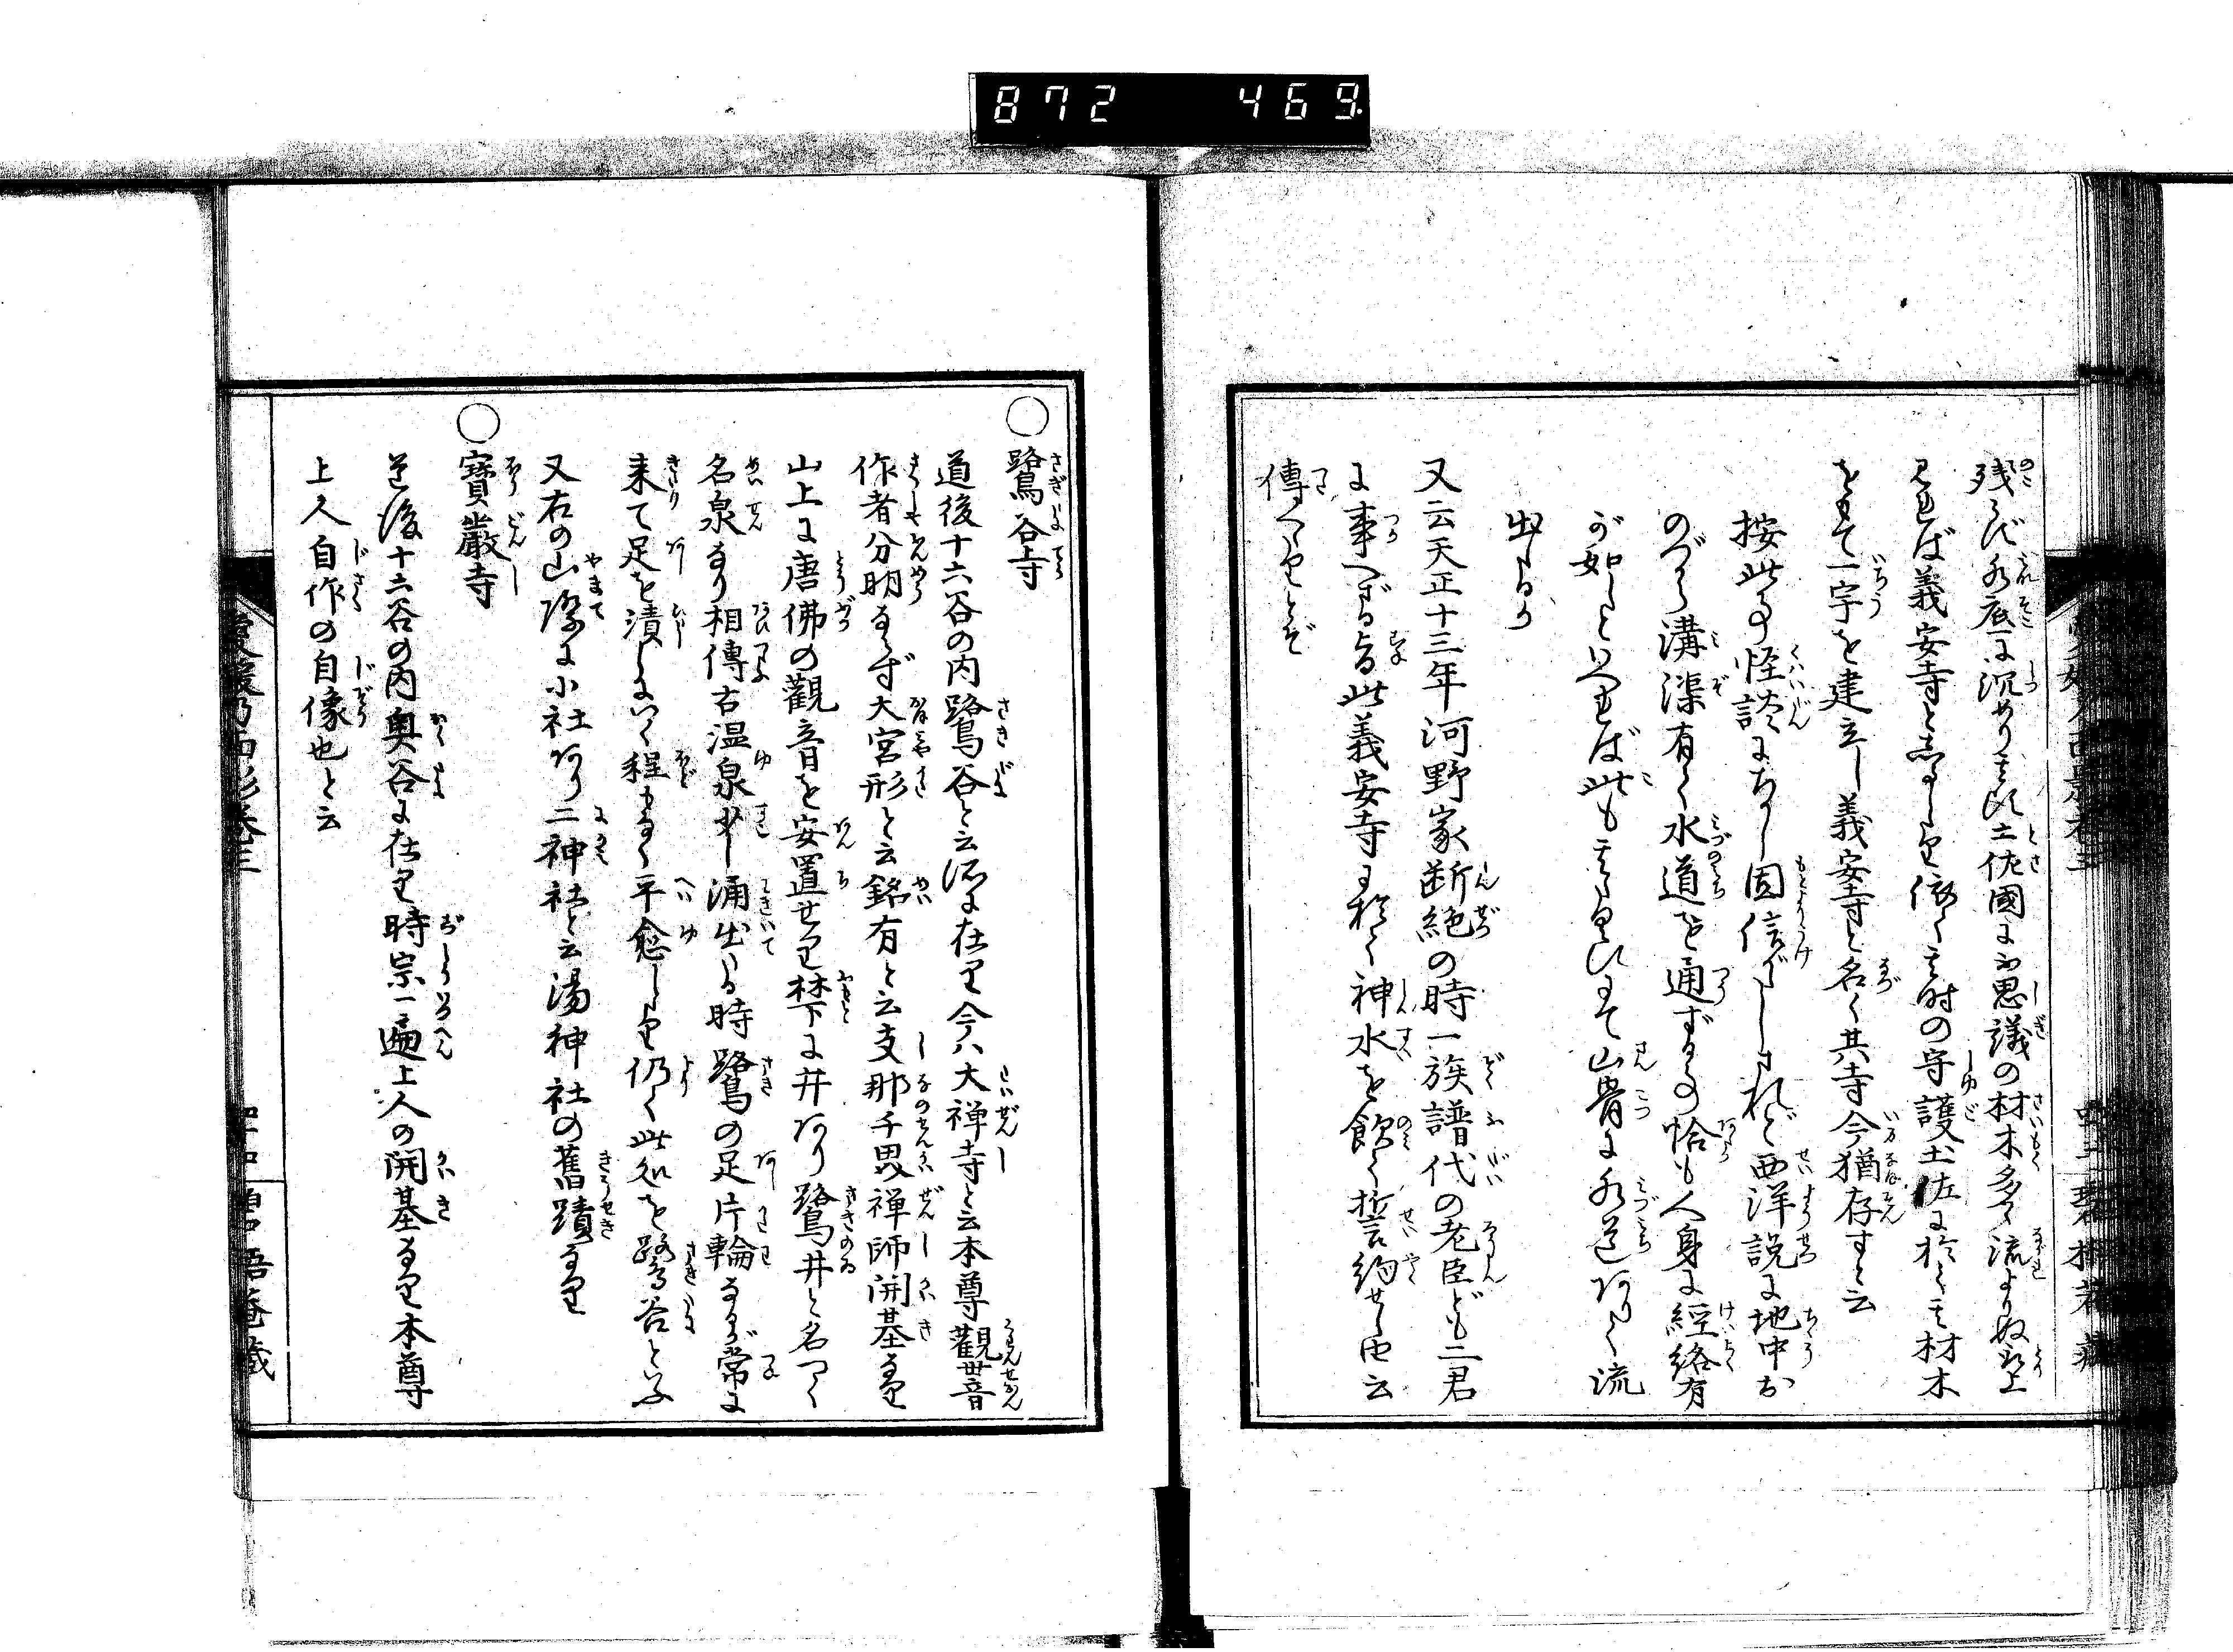 872 469
残らず水底に沉めり其頃土佐國に不思議の材木多く流よりぬ取上
見れば義安寺と志るしたり依て其時の守護土佐に於て其材木
をもて一宇を建立し義安寺と名く其寺今猶存すと云
按此事怪談にちかし固信がたしされど西洋説に地中お
のづから溝渠有て水道を通ずる事恰も人身に經絡有
が如しといへれば此も其たぐひにて山骨に水道ありて流
出たるか
又云天正十三年河野家断絶の時一族譜代の老臣ども二君
に事へざる旨此義安寺に於て神水を飲て誓約せし由云
傳へたりとぞ
○鷺谷寺
道後十六谷の内鷺谷と云所に在り今ハ大禅寺と云本尊觀世音
作者分明ならず大宮形と云銘有と云支那千畏禅師開基なり
山上に唐佛の觀音を安置せり禁下に井あり鷺井と名つく
名泉なり相傳古温泉少し涌出る時鷺の足片輪なるが常に
来て足を漬しにいく程もなく平愈したり仍て此処を鷺谷といふ
又右の山際に小社あり二神社と云湯神社の舊蹟なり
○寶嚴寺
道後十六谷の内奥谷に在り時宗一遍上人の開基なり本尊
上人自作の自像也と云